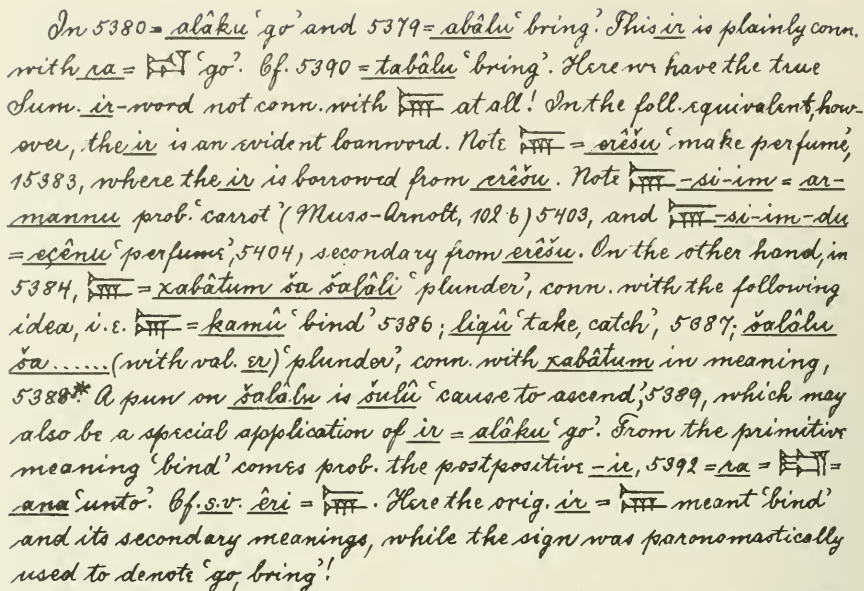 In 5380 = alâku ‘go’ and 5379 = abâlu ‘bring’. This ir is plainly conn.
with ra = 𒁺 ‘go’. Cf. 5390 = tabâlu ‘bring’. Here we have the true
Sum. ir-word not conn. with 𒅕 at all! In the foll. equivalent, how-
ever, the ir is an evident loanword. Note 𒅕 = erêšu ‘make perfume’,
15383, where the ir is borrowed from erêšu. Note 𒅕-si-im = ar-
mannu prob. ‘carrot’ (Muss-Arnolt, 102 b) 5403, and 𒅕-si-im-du
= eçênu ‘perfume’, 5404, secondary from erêšu. On the other hand, in
5384, 𒅕 = xabâtum ša šalâli ‘plunder’, conn. with the following
idea, i.e. 𒅕 = kamû ‘bind’ 5386; liqû ‘take, catch’, 5387; šalâlu
ša ...... (with val. er) ‘plunder’, conn. with xabâtum in meaning,
5388.* A pun on šalâlu is šulû ‘cause to ascend’, 5389, which may
also be a special application of ir = alâku ‘go’. From the primitive
meaning ‘bind’ comes prob. the postpositive -ir, 5392 = ra = 𒊏 =
ana ‘unto’. Cf. s.v. êri = 𒅕. Here the orig. ir = 𒅕 meant ‘bind’
and its secondary meanings, while the sign was paronomastically
used to denote ‘go, bring’!